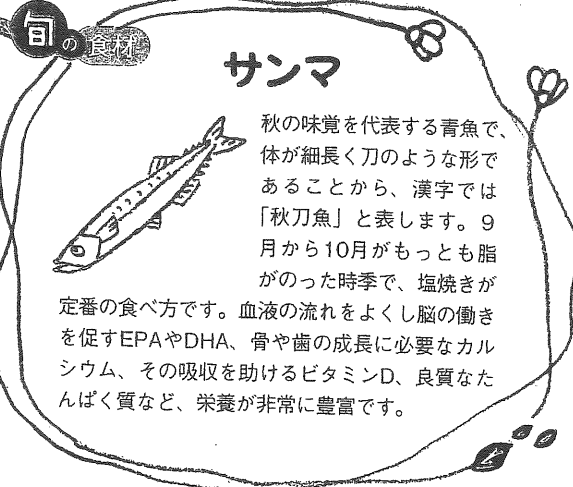 旬の食材
サンマ
秋の味覚を代表する青魚で、
体が細長く刀のような形で
あることから、漢字では
「秋刀魚」と表します。9
月から10月がもっとも脂
がのった時季で、塩焼きが
定番の食べ方です。血液の流れをよくし脳の働き
を促すEPAやDHA、骨や歯の成長に必要なカル
シウム、その吸収を助けるビタミンD、良質なた
んぱく質など、栄養が非常に豊富です。